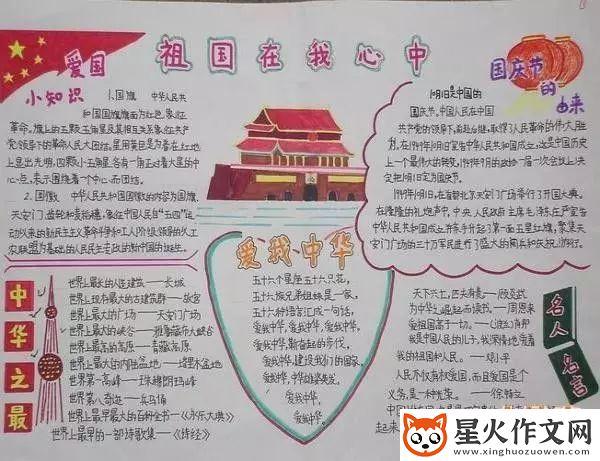 祖国在我心中
爱国
小知识
1.国旗 中华人民共
和国国旗旗面为红色,象征
革命。旗上的五颗五角星及其相互关系象征共产
党领导下的革命人民大团结。星用黄色是为着在红地
上显出光明,四颗小五角星各有一角正对着大星的中
心点,表示围绕着一个中心而团结。
2.国徽 中华人民共和国国徽的内容为国旗、
天安门、齿轮和麦稻穗,象征中国人民自“五四”运
动以来的新民主主义革命斗争和工人阶级领导的以工
农联盟为基础的人民民主专政的新中国的诞生。
国庆节
的
由来
10月1日是中国的
国庆节。中国人民在中国
共产党的领导下,前赴后继,取得了人民革命的伟大胜
利。在1949年10月1日宣告中华人民共和国成立,这是中国历史
上一个最伟大的转变。
决定把10月1日定为国庆节。
1949年10月1日,在首都北京天安门广场举行了开国大典。
在隆隆的礼炮声中,中央人民政府主席毛泽东庄严宣告
中华人民共和国成立并亲手升起了第一面五星红旗。聚集天
安门广场的三十万军民进行了盛大的阅兵和庆祝游行。
中华之最
世界上最长的人造建筑——长城
世界上现存最大的古建筑群——故宫
世界上最大的广场——天安门广场
世界上最大的峡谷——雅鲁藏布大峡谷
世界上最高的高原——青藏高原
世界上最大的内陆盆地——塔里木盆地
世界第一高峰——珠穆朗玛峰
世界第一人奇迹——兵马俑
世界上最早最大的百科全书——《永乐大典》
世界上最早的一部诗歌集——《诗经》
爱我中华
五十六个星座五十六只花,
五十六族兄弟姐妹是一家,
五十六种语言汇成一句话,
爱我中华,爱我中华,爱我中华,
爱我中华,健奋起的步伐,
爱我中华,建设我们的国家,
爱我中华,中华雄姿英发,
爱我中华,
爱我中华。
名人名言
天下兴亡,匹夫有责——顾炎武
为中华之崛起而读书——周恩来
爱祖国高于一切。——肖邦
是中国人民的儿子,我深情地爱着
我的祖国和人民。——邓小平
人民不仅有权爱国,而且爱国是个
义务,是一种光荣。——徐特立
星火作文网
www.xinghuozuowen.com